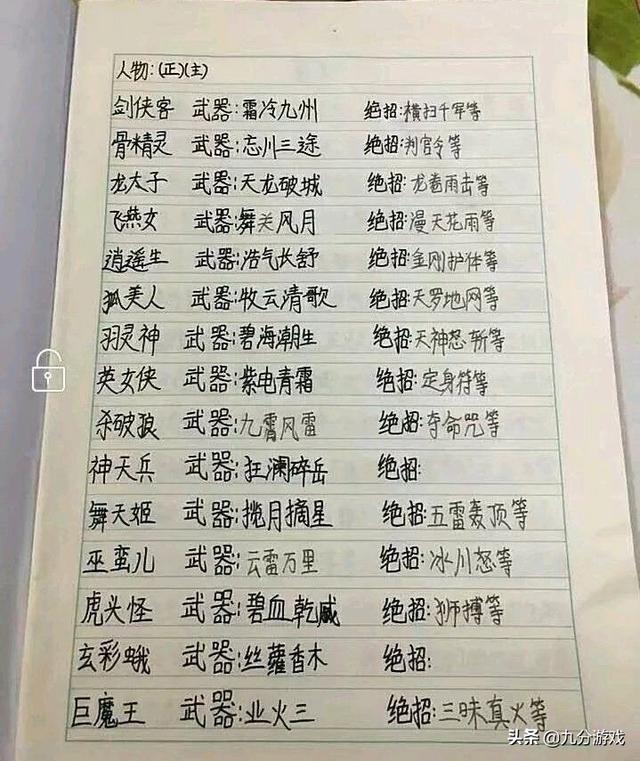 人物:(正)(主)
剑侠客 武器:霜冷九州 绝招:横扫千军等
骨精灵 武器:忘川三途 绝招:判官令等
龙太子 武器:天龙破城 绝招:龙卷雨击等
飞燕女 武器:舞关风月 绝招:漫天花雨等
逍遥生 武器:浩气长舒 绝招:金刚护体等
狐美人 武器:牧云清歌 绝招:天罗地网等
羽灵神 武器:碧海潮生 绝招:天神怒斩等
英女侠 武器:紫电青霜 绝招:定身符等
杀破狼 武器:九霄风雷 绝招:夺命咒等
神天兵 武器:狂澜碎岳 绝招:
舞天姬 武器:揽月摘星 绝招:五雷轰顶等
巫蛮儿 武器:云雷万里 绝招:冰川怒等
虎头怪 武器:碧血乾戚 绝招:狮搏等
玄彩蛾 武器:丝萝香木 绝招:
巨魔王 武器:业火三 绝招:三昧真火等
头条 @九分游戏